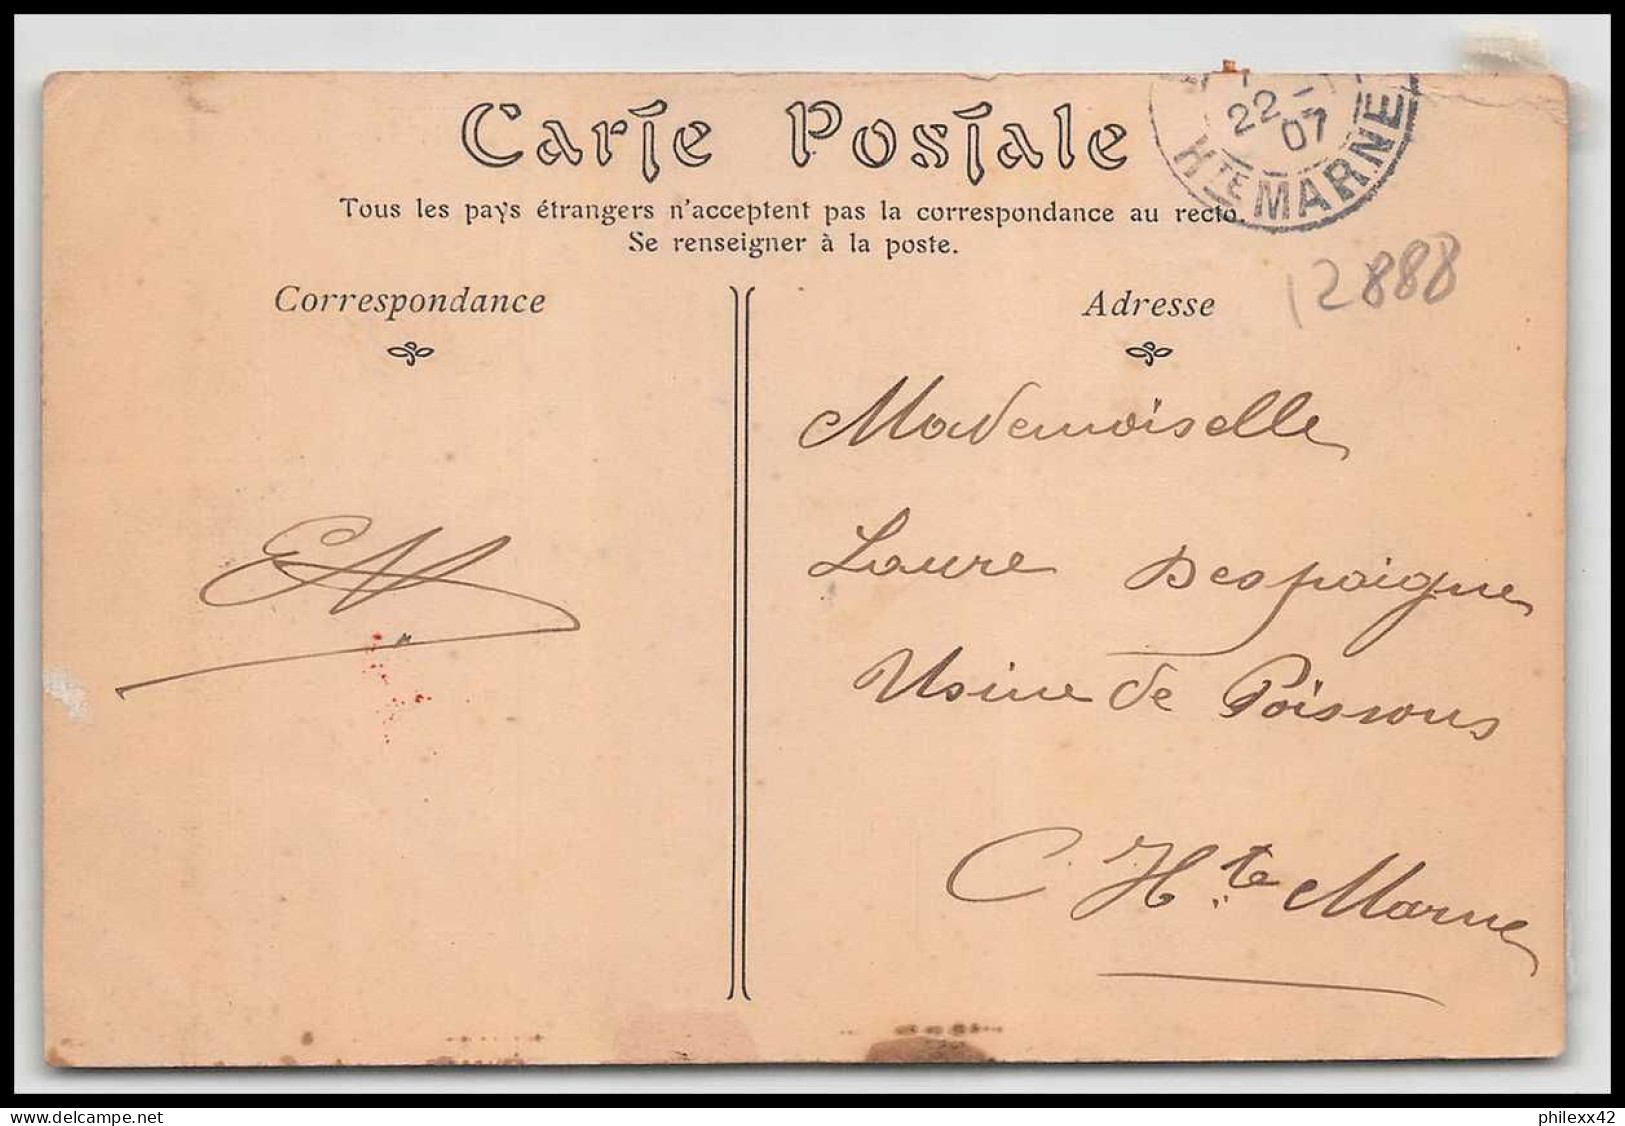 Carte Postale
22 - 1
07
HTE MARNE
Tous les pays étrangers n'acceptent pas la correspondance au recto.
Se renseigner à la poste.
12888
Correspondance
Adresse
Mademoiselle
Laure Despaigne
Usine de Poissons
Hte Marne
Delcampe.net
philexx42